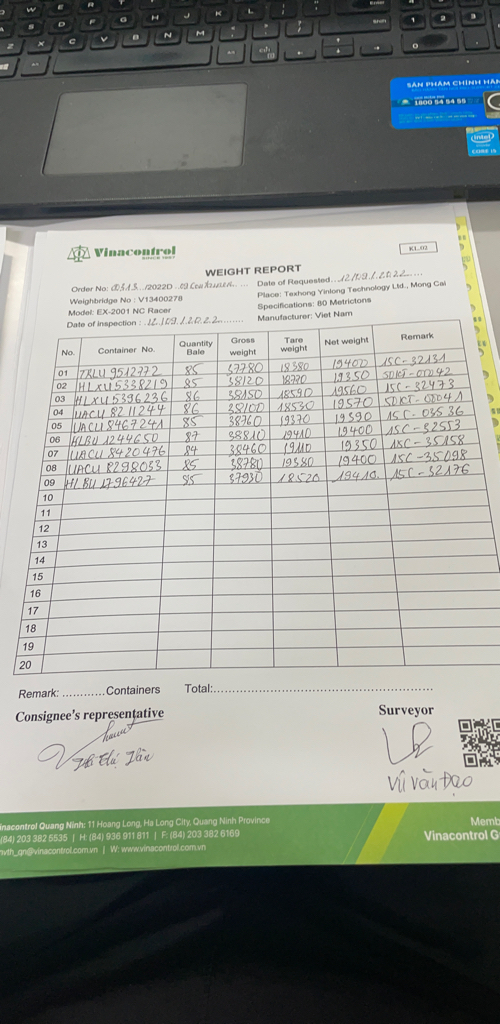 SẢN PHẨM CHÍNH HÃN
1800 54 54 55
intel
CORE i5
Vinacontrol
SINCE 1957
KL.02
WEIGHT REPORT
Order No: 00313 /2022D 09 Containers
Date of Requested 12/09/2022
Weighbridge No : V13400278
Place: Texhong Yinlong Technology Ltd., Mong Cai
Model: EX-2001 NC Racer
Specifications: 80 Metrictons
Date of inspection : 12/09/2022
Manufacturer: Viet Nam
No. Container No. Quantity Bale Gross weight Tare weight Net weight Remark
01 TRLU 9512772 85 37780 18380 19400 15C-32131
02 HLXU 5338219 85 38120 18770 19350 SDKT-00042
03 HLXU 5396236 86 38150 18590 19560 15C-32473
04 UACU 8211244 86 38100 18530 19570 SDKT-00041
05 UACU 8467241 85 38760 19370 19390 15C-03536
06 HLBU 1244650 87 38810 19410 19400 15C-32553
07 UACU 8420476 84 38460 19110 19350 15C-35158
08 UACU 8298033 85 38780 19380 19400 15C-35098
09 HLBU 1796427 85 37930 18520 19410 15C-32176
10
11
12
13
14
15
16
17
18
19
20
Remark: ............Containers Total:
Consignee's representative
Surveyor
Vũ Văn Đạo
inacontrol Quang Ninh: 11 Hoang Long, Ha Long City, Quang Ninh Province
(84) 203 382 5535 | H: (84) 936 911 811 | F: (84) 203 382 6169
nvth_qn@vinacontrol.com.vn | W: www.vinacontrol.com.vn
Memb
Vinacontrol G